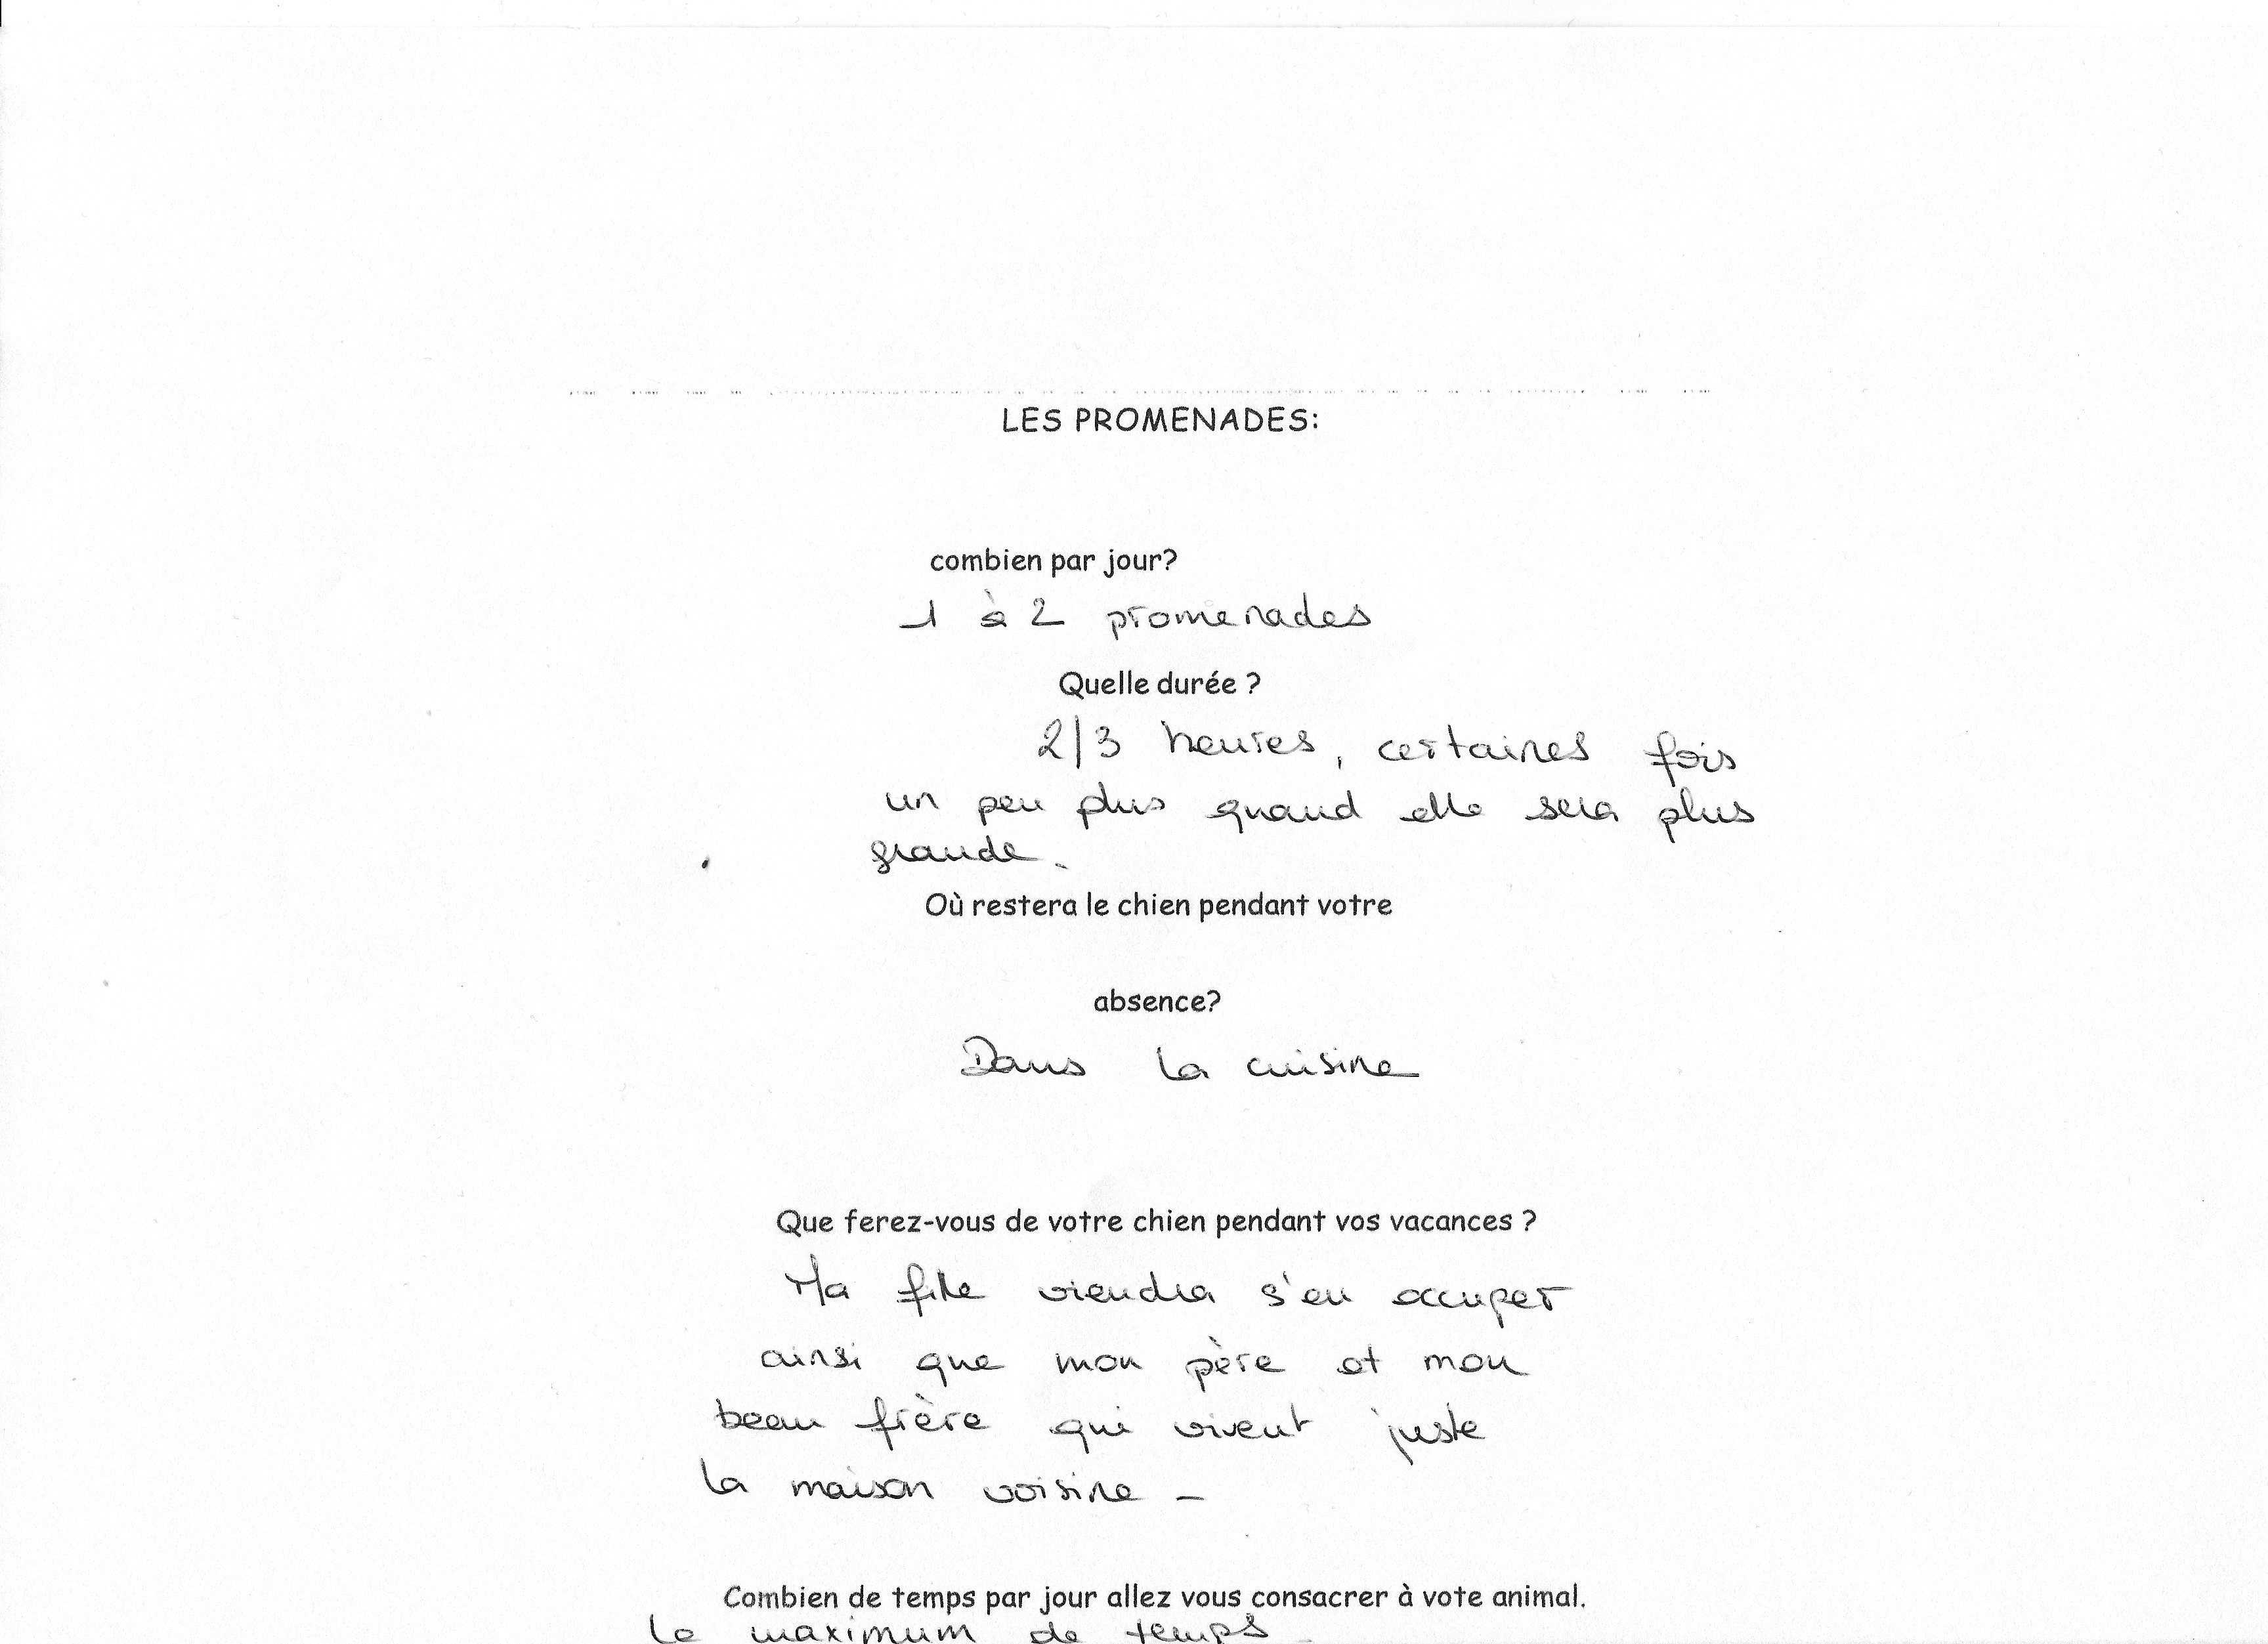 LES PROMENADES:
combien par jour?
1 à 2 promenades
Quelle durée ?
2/3 heures, certaines fois
un peu plus quand elle sera plus
grande.
Où restera le chien pendant votre
absence?
Dans la cuisine
Que ferez-vous de votre chien pendant vos vacances ?
Ma fille viendra s'en occuper
ainsi que mon père et mon
beau frère qui vivent juste
la maison voisine -
Combien de temps par jour allez vous consacrer à vote animal.
Le maximum de temps -